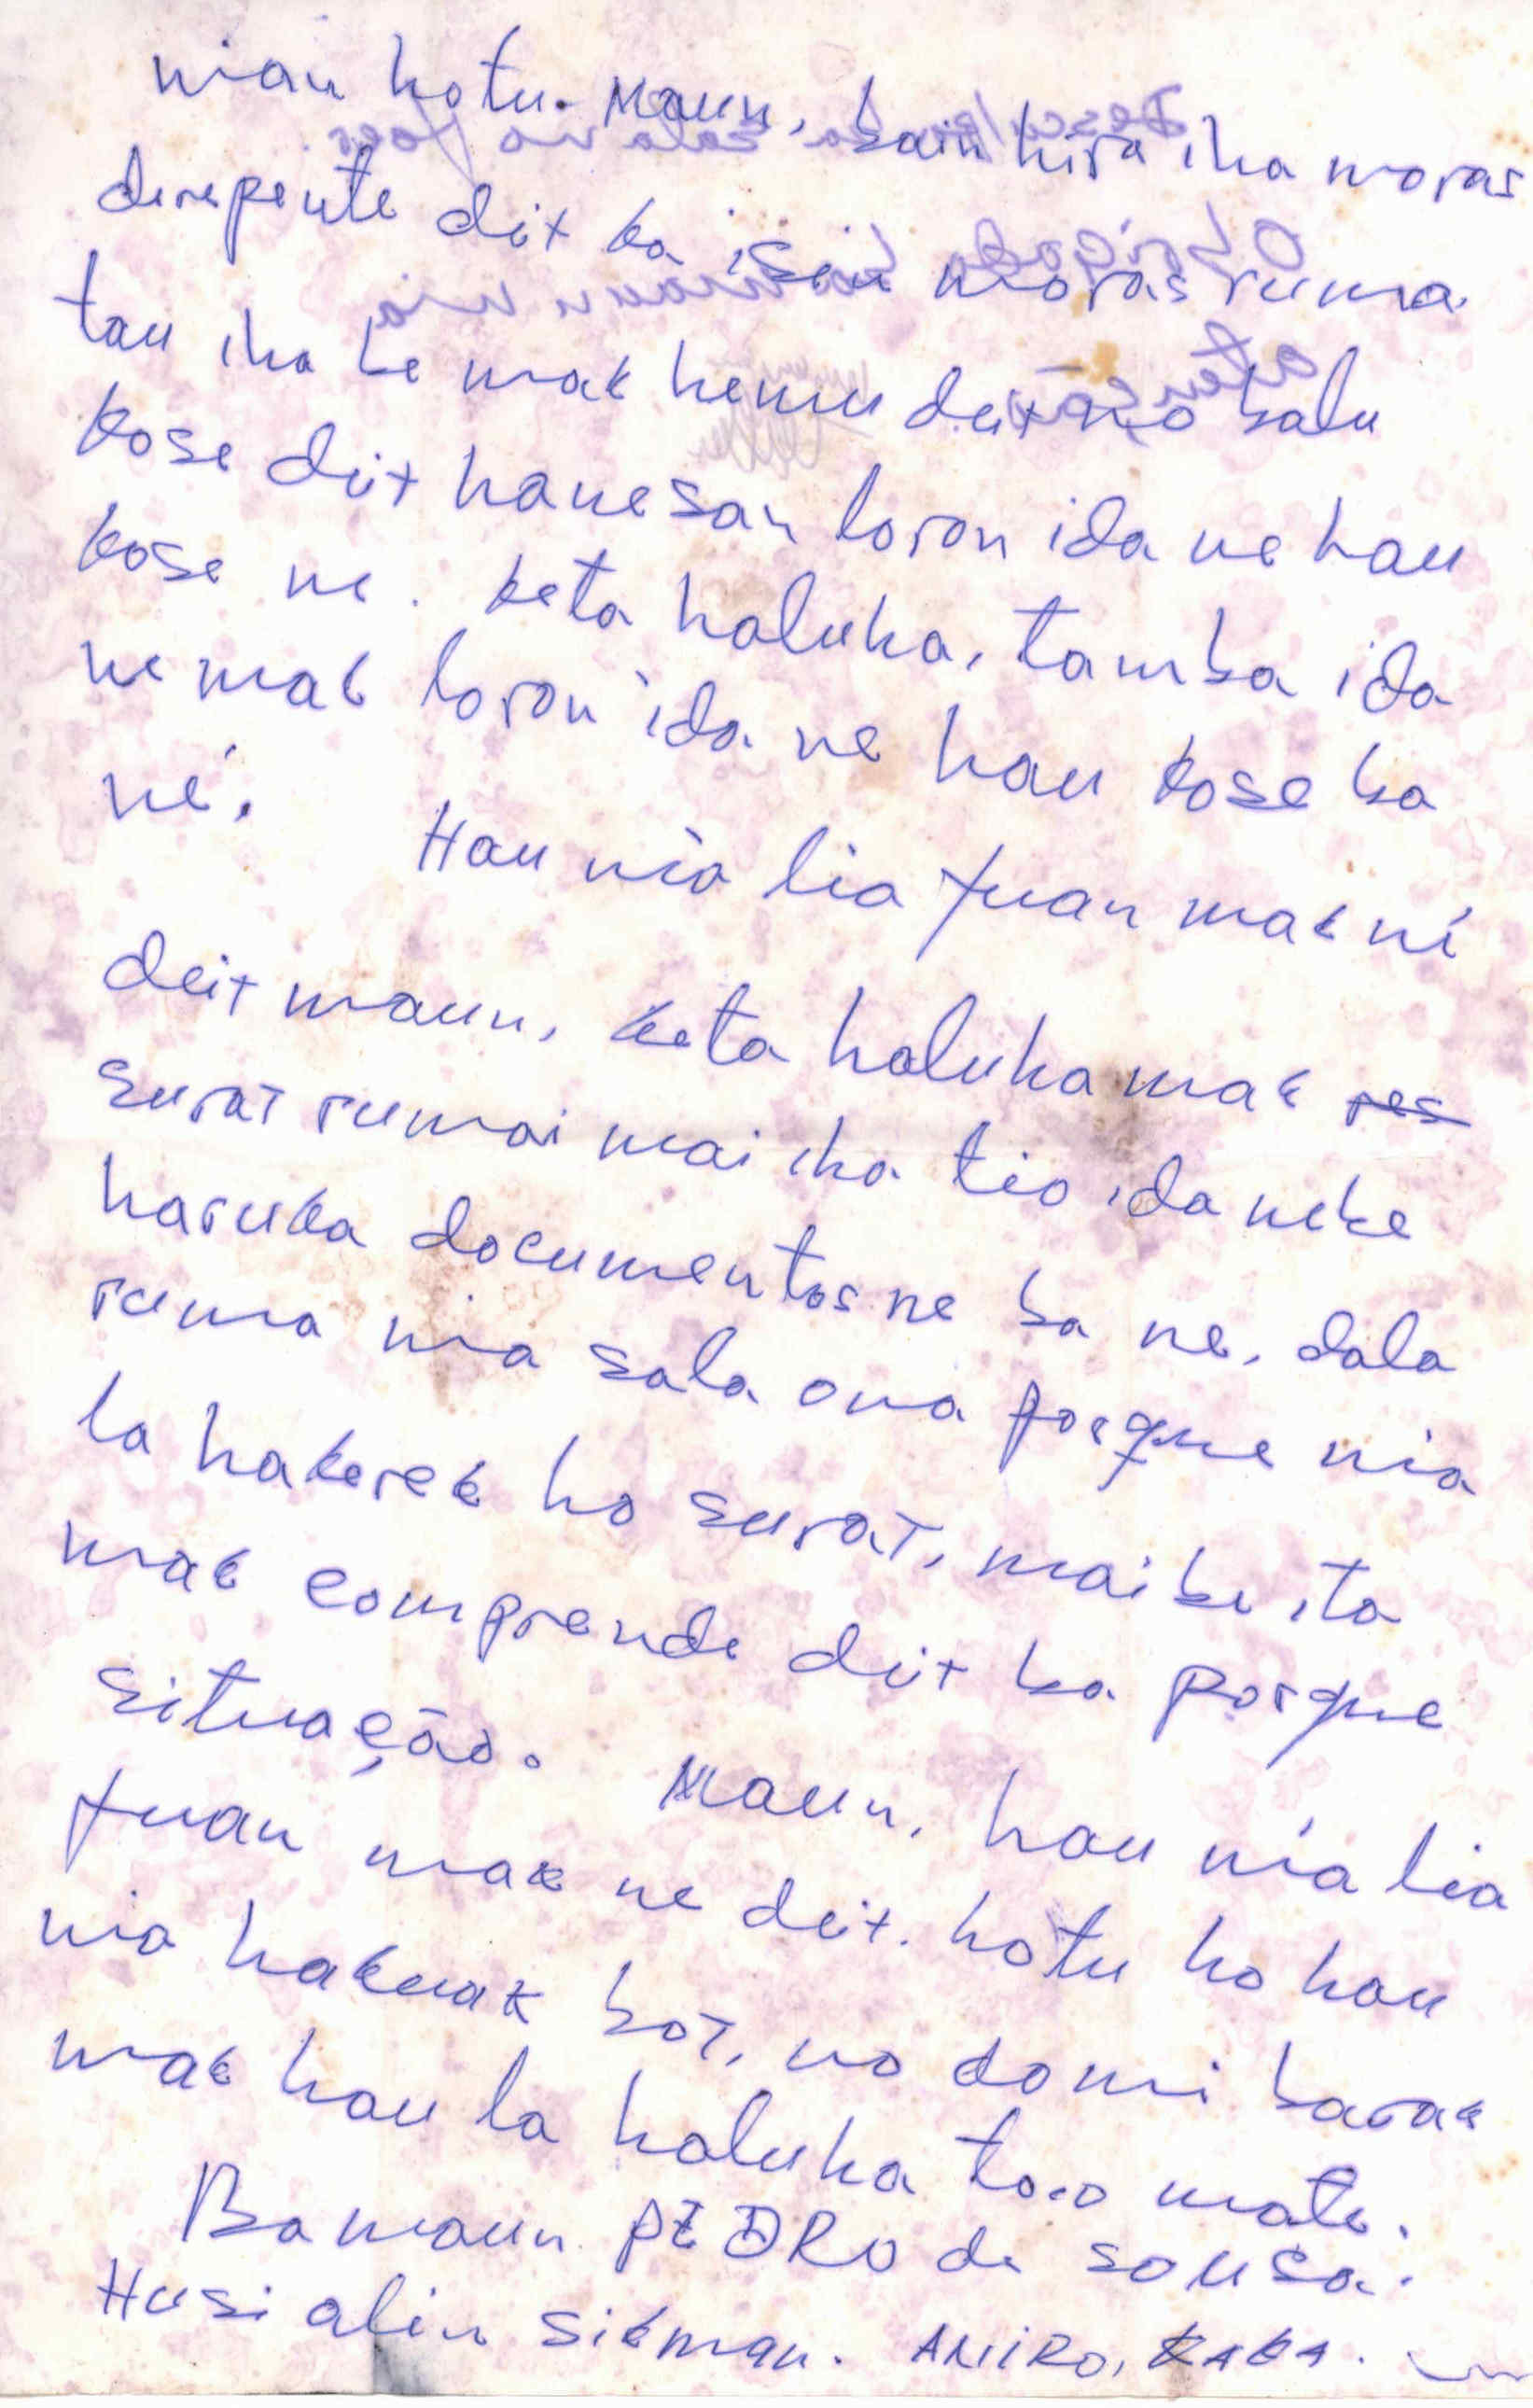 nian hotu. Maun, bain hira iha moras
derepente deit ba isin moras ruma
tau iha be mak hemu deit no balu
kose deit hanesan loron ida ne hau
kose ne. keta haluha, tamba ida
ne mak loron ida ne hau kose ba
né. Hau nia lia fuan mak né
deit maun, keta haluha mak res
surat rumai mai iha tio ida nebe
haruka documentos ne ba ne, dala
ruma nia sala ona porque nia
la hakerek ho surat, maibe ita
mak comprende deit ba porque
situação. Maun, hau nia lia
fuan mak ne deit. hotu ho hau
nia hakuak bot, no domi barak
mak hau la haluha to.o mate.
Ba maun PEDRO de sousa.
Husi alin sikman. AMIRO, KAKA.